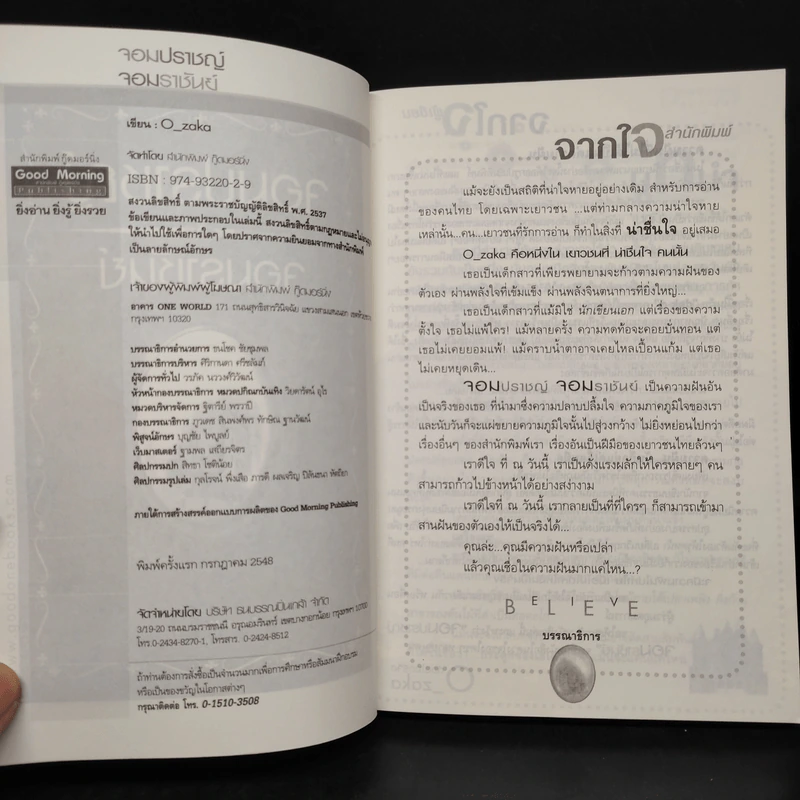 จอมปราชญ์
จอมราชันย์
เขียน : O_zaka
สำนักพิมพ์ กู๊ดมอร์นิ่ง
Good Morning
Publishing
ยิ่งอ่าน ยิ่งรู้ ยิ่งรวย
จัดทำโดย สำนักพิมพ์ กู๊ดมอร์นิ่ง
ISBN : 974-93220-2-9
สงวนลิขสิทธิ์ ตามพระราชบัญญัติลิขสิทธิ์ พ.ศ. 2537
ข้อเขียนและภาพประกอบในเล่มนี้ สงวนลิขสิทธิ์ตามกฎหมายและไม่อนุญาต
ให้นำไปใช้เพื่อการใดๆ โดยปราศจากความยินยอมจากทางสำนักพิมพ์
เป็นลายลักษณ์อักษร
เจ้าของผู้พิมพ์ผู้โฆษณา สำนักพิมพ์ กู๊ดมอร์นิ่ง
อาคาร ONE WORLD 171 ถนนสุทธิสารวินิจฉัย แขวงสามเสนนอก
กรุงเทพฯ 10320
บรรณาธิการอำนวยการ ธนโชค ชัยชุมพล
บรรณาธิการบริหาร ศิริกานดา ศรีชลัมภ์
ผู้จัดการทั่วไป วรภัค นววงศ์วิวัฒน์
หัวหน้ากองบรรณาธิการ หมวดปกิณกบันเทิง วิยดารัตน์ อุไร
หมวดบริหารจัดการ ฐิตารีย์ พรวาปี
กองบรรณาธิการ ภูวเดช สินพงศ์พร ทักษิณ ฐานวัฒน์
พิสูจน์อักษร บุญชัย ไพบูลย์
เว็บมาสเตอร์ ฐามพล เสถียรจิตร
ศิลปกรรมปก สิทธา โชติน้อย
ศิลปกรรมรูปเล่ม กุลโรจน์ พึ่งเสือ ภารดี ผลเจริญ
ภายใต้การสร้างสรรค์ออกแบบการผลิตของ Good Morning Publishing
พิมพ์ครั้งแรก กรกฎาคม 2548
จัดจำหน่ายโดย บริษัท ธนบรรณปิ่นเกล้า จำกัด
3/19-20 ถนนบรมราชชนนี อรุณอมรินทร์ เขตบางกอกน้อย กรุงเทพฯ 10700
โทร.0-2434-8270-1, โทรสาร. 0-2424-8512
ถ้าท่านต้องการสั่งซื้อเป็นจำนวนมากเพื่อการศึกษาหรือสัมมนาฝึกอบรม
หรือเป็นของขวัญในโอกาสต่างๆ
กรุณาติดต่อ โทร. 0-1510-3508
จากใจ สำนักพิมพ์
แม้จะยังเป็นสถิติที่น่าใจหายอยู่อย่างเดิม สำหรับการอ่าน
ของคนไทย โดยเฉพาะเยาวชน ...แต่ท่ามกลางความน่าใจหาย
เหล่านั้น...คน...เยาวชนที่รักการอ่าน ก็ทำในสิ่งที่ น่าชื่นใจ อยู่เสมอ
O_zaka คือหนึ่งใน เยาวชนที่ น่าชื่นใจ คนนั้น
เธอเป็นเด็กสาวที่เพียรพยายามจะก้าวตามความฝันของ
ตัวเอง ผ่านพลังใจที่เข้มแข็ง ผ่านพลังจินตนาการที่ยิ่งใหญ่...
เธอเป็นเด็กสาวที่แม้มิใช่ นักเขียนเอก แต่เรื่องของความ
ตั้งใจ เธอไม่แพ้ใคร! แม้หลายครั้ง ความทดท้อจะคอยบั่นทอน แต่
เธอไม่เคยยอมแพ้! แม้คราบน้ำตาอาจเคยไหลเปื้อนแก้ม แต่เธอ
ไม่เคยหยุดเดิน...
จอมปราชญ์ จอมราชันย์ เป็นความฝันอัน
เป็นจริงของเธอ ที่นำมาซึ่งความปลาบปลื้มใจ ความภาคภูมิใจของเรา
และนับวันก็จะแผ่ขยายความภูมิใจนั้นไปสู่วงกว้าง ไม่ยิ่งหย่อนไปกว่า
เรื่องอื่นๆ ของสำนักพิมพ์เรา เรื่องอันเป็นฝีมือของเยาวชนไทยล้วนๆ
เราดีใจ ที่ ณ วันนี้ เราเป็นดั่งแรงผลักให้ใครหลายๆ คน
สามารถก้าวไปข้างหน้าได้อย่างสง่างาม
เราดีใจที่ ณ วันนี้ เรากลายเป็นที่ที่ใครๆ ก็สามารถเข้ามา
สานฝันของตัวเองให้เป็นจริงได้...
คุณล่ะ...คุณมีความฝันหรือเปล่า
แล้วคุณเชื่อในความฝันมากแค่ไหน...?
BELIEVE
บรรณาธิการ